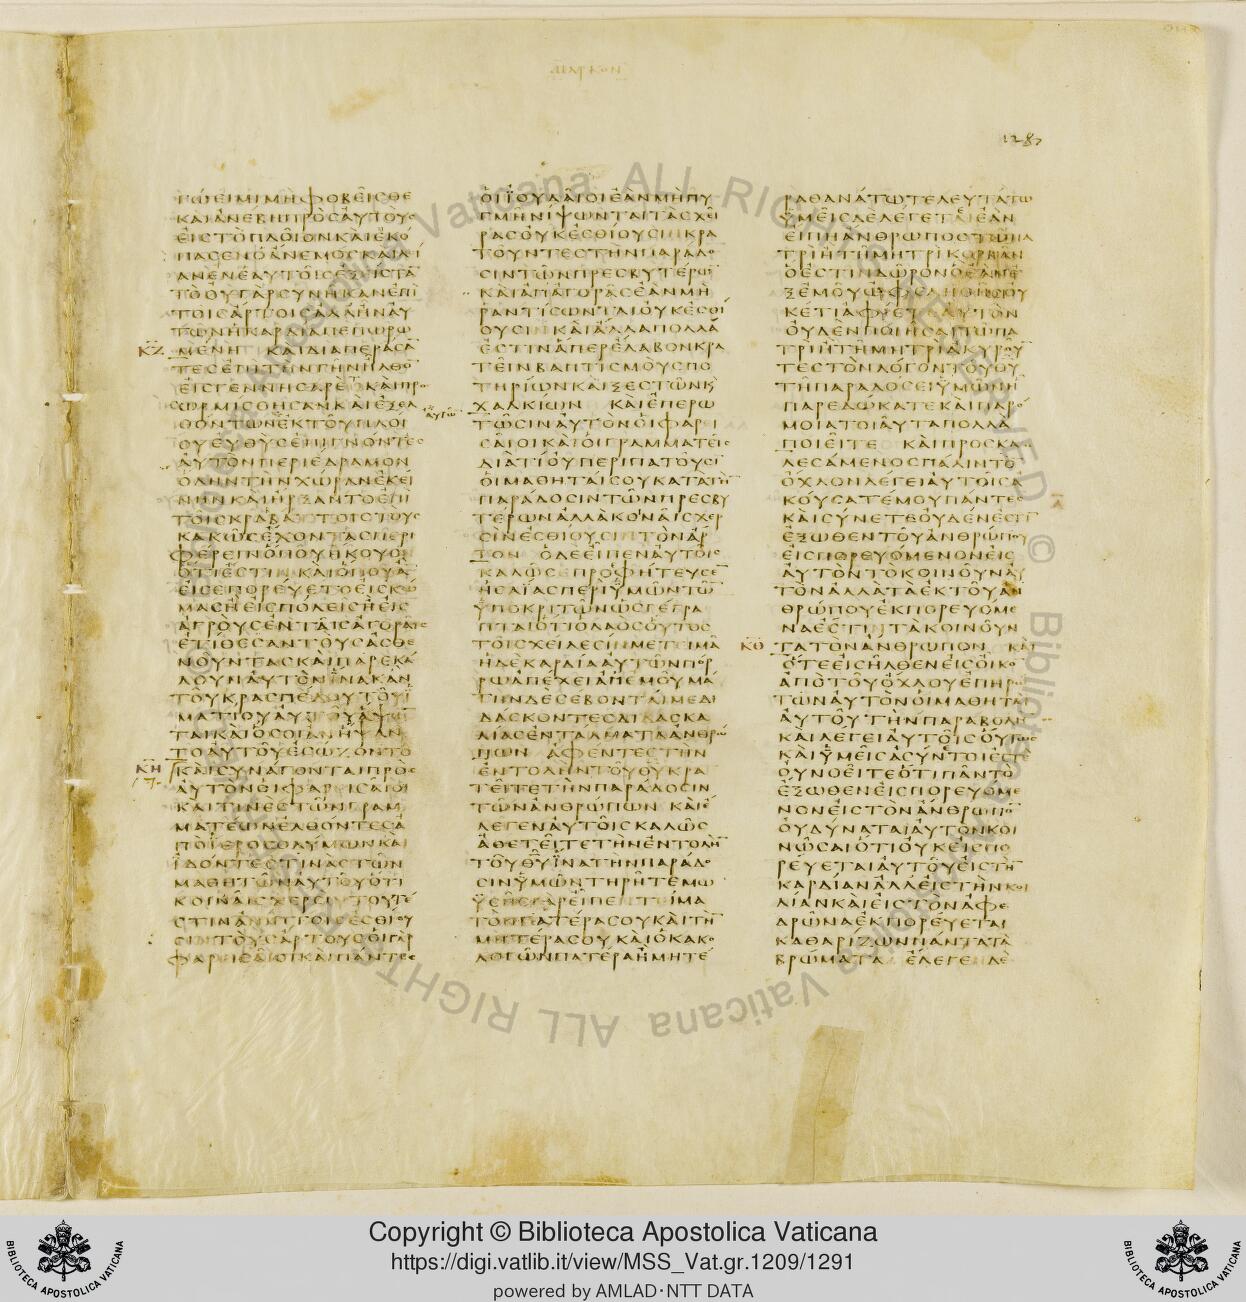 1287
ΓΩΕΙΜΙΜΗΦΟΒΕΙΣΘΕ
ΚΑΙΑΝΕΒΗΠΡΟΣΑΥΤΟΥΣ
ΕΙΣΤΟΠΛΟΙΟΝΚΑΙΕΚΟ
ΠΑΣΕΝΟΑΝΕΜΟΣΚΑΙΛΙ
ΑΝΕΝΕΑΥΤΟΙΣΕΞΙΣΤΑ
ΤΟΟΥΓΑΡΣΥΝΗΚΑΝΕΠΙ
ΤΟΙΣΑΡΤΟΙΣΑΛΛΗΝΑΥ
ΤΩΝΗΚΑΡΔΙΑΠΕΠΩΡΩ
ΚΖ ΜΕΝΗ ΚΑΙΔΙΑΠΕΡΑΣΑ
ΤΕΣΕΠΙΤΗΝΓΗΝΗΛΘΟ
ΕΙΣΓΕΝΝΗΣΑΡΕΤΚΑΙΠΡΟ
ΣΩΡΜΙΣΘΗΣΑΝΚΑΙΕΞΕΛ
ΘΟΝΤΩΝΕΚΤΟΥΠΛΟΙ
ΟΥΕΥΘΥΣΕΠΙΓΝΟΝΤΕΣ
ΑΥΤΟΝΠΕΡΙΕΔΡΑΜΟΝ
ΟΛΗΝΤΗΝΧΩΡΑΝΕΚΕΙ
ΝΗΝΚΑΙΗΡΞΑΝΤΟΕΠΙ
ΤΟΙΣΚΡΑΒΑΤΤΟΙΣΤΟΥΣ
ΚΑΚΩΣΕΧΟΝΤΑΣΠΕΡΙ
ΦΕΡΕΙΝΟΠΟΥΗΚΟΥΟ
ΟΤΙΕΣΤΙΝΚΑΙΟΠΟΥΑ
ΕΙΣΕΠΟΡΕΥΕΤΟΕΙΣΚΩ
ΜΑΣΗΕΙΣΠΟΛΕΙΣΗΕΙΣ
ΑΓΡΟΥΣΕΝΤΑΙΣΑΓΟΡΑΙΣ
ΕΤΙΘΕΣΑΝΤΟΥΣΑΣΘΕ
ΝΟΥΝΤΑΣΚΑΙΠΑΡΕΚΑ
ΛΟΥΝΑΥΤΟΝΙΝΑΚΑΝ
ΤΟΥΚΡΑΣΠΕΔΟΥΤΟΥΙ
ΜΑΤΙΟΥΑΥΤΟΥΑΨΩ
ΤΑΙΚΑΙΟΣΟΙΑΝΗΨΑΝ
ΤΟΑΥΤΟΥΕΣΩΖΟΝΤΟ
ΚΗ ΚΑΙΣΥΝΑΓΟΝΤΑΙΠΡΟΣ
ΑΥΤΟΝΟΙΦΑΡΕΙΣΑΙΟΙ
ΚΑΙΤΙΝΕΣΤΩΝΓΡΑΜ
ΜΑΤΕΩΝΕΛΘΟΝΤΕΣΑ
ΠΟΙΕΡΟΣΟΛΥΜΩΝΚΑΙ
ΙΔΟΝΤΕΣΤΙΝΑΣΤΩΝ
ΜΑΘΗΤΩΝΑΥΤΟΥΟΤΙ
ΚΟΙΝΑΙΣΧΕΡΣΙΝΤΟΥΤΕ
ΣΤΙΝΑΝΙΠΤΟΙΣΕΣΘΙΟΥ
ΣΙΝΤΟΥΣΑΡΤΟΥΣΟΙΓΑΡ
ΦΑΡΕΙΣΑΙΟΙΚΑΙΠΑΝΤΕΣ
ΟΙΙΟΥΔΑΙΟΙΕΑΝΜΗΠΥ
ΓΜΗΝΙΨΩΝΤΑΙΤΑΣΧΕΙ
ΡΑΣΟΥΚΕΣΘΙΟΥΣΙΝΚΡΑ
ΤΟΥΝΤΕΣΤΗΝΠΑΡΑΔΟ
ΣΙΝΤΩΝΠΡΕΣΒΥΤΕΡΩ
ΚΑΙΑΠΑΓΟΡΑΣΕΑΝΜΗ
ΡΑΝΤΙΣΩΝΤΑΙΟΥΚΕΣΘΙ
ΟΥΣΙΝΚΑΙΑΛΛΑΠΟΛΛΑ
ΕΣΤΙΝΑΠΕΡΕΛΑΒΟΝΚΡΑ
ΤΕΙΝΒΑΠΤΙΣΜΟΥΣΠΟ
ΤΗΡΙΩΝΚΑΙΞΕΣΤΩΝΚ
ΧΑΛΚΙΩΝ ΚΑΙΕΠΕΡΩ
ΤΩΣΙΝΑΥΤΟΝΟΙΦΑΡΙ
ΣΑΙΟΙΚΑΙΟΙΓΡΑΜΜΑΤΕΙΣ
ΔΙΑΤΙΟΥΠΕΡΙΠΑΤΟΥΣΙ
ΟΙΜΑΘΗΤΑΙΣΟΥΚΑΤΑΤΗ
ΠΑΡΑΔΟΣΙΝΤΩΝΠΡΕΣΒΥ
ΤΕΡΩΝΑΛΛΑΚΟΙΝΑΙΣΧΕΡ
ΣΙΝΕΣΘΙΟΥΣΙΝΤΟΝΑΡ
ΤΟΝ ΟΔΕΕΙΠΕΝΑΥΤΟΙΣ
ΚΑΛΩΣΕΠΡΟΦΗΤΕΥΣΕ
ΗΣΑΙΑΣΠΕΡΙΥΜΩΝΤΩ
ΥΠΟΚΡΙΤΩΝΩΣΓΕΓΡΑ
ΠΤΑΙΟΤΙΟΛΑΟΣΟΥΤΟΣ
ΤΟΙΣΧΕΙΛΕΣΙΝΜΕΤΕΙΜΑ
ΗΔΕΚΑΡΔΙΑΑΥΤΩΝΠΟΡ
ΡΩΑΠΕΧΕΙΑΠΕΜΟΥΜΑ
ΤΗΝΔΕΣΕΒΟΝΤΑΙΜΕΔΙ
ΔΑΣΚΟΝΤΕΣΔΙΔΑΣΚΑ
ΛΙΑΣΕΝΤΑΛΜΑΤΑΑΝΘΡΩ
ΠΩΝ ΑΦΕΝΤΕΣΤΗΝ
ΕΝΤΟΛΗΝΤΟΥΘΥΚΡΑ
ΤΕΙΤΕΤΗΝΠΑΡΑΔΟΣΙΝ
ΤΩΝΑΝΘΡΩΠΩΝ ΚΑΙΕ
ΛΕΓΕΝΑΥΤΟΙΣΚΑΛΩΣ
ΑΘΕΤΕΙΤΕΤΗΝΕΝΤΟΛΗ
ΤΟΥΘΥΙΝΑΤΗΝΠΑΡΑΔΟ
ΣΙΝΥΜΩΝΤΗΡΗΤΕΜΩ
ΥΣΗΣΓΑΡΕΙΠΕΝΤΕΙΜΑ
ΤΟΝΠΑΤΕΡΑΣΟΥΚΑΙΤΗ
ΜΗΤΕΡΑΣΟΥΚΑΙΟΚΑΚΟ
ΛΟΓΩΝΠΑΤΕΡΑΗΜΗΤΕ
ΡΑΘΑΝΑΤΩΤΕΛΕΥΤΑΤΩ
ΥΜΕΙΣΔΕΛΕΓΕΤΕΕΑΝ
ΕΙΠΗΑΝΘΡΩΠΟΣΤΩΠΑ
ΤΡΙΗΤΗΜΗΤΡΙΚΟΡΒΑΝ
ΟΕΣΤΙΝΔΩΡΟΝΟΕΑΝΕ
ΞΕΜΟΥΩΦΕΛΗΘΗΣΟΥ
ΚΕΤΙΑΦΙΕΤΕΑΥΤΟΝ
ΟΥΔΕΝΠΟΙΗΣΑΙΤΩΠΑ
ΤΡΙΗΤΗΜΗΤΡΙΑΚΥΡΟΥ
ΤΕΣΤΟΝΛΟΓΟΝΤΟΥΘΥ
ΤΗΠΑΡΑΔΟΣΕΙΥΜΩΝΗ
ΠΑΡΕΔΩΚΑΤΕΚΑΙΠΑΡΟ
ΜΟΙΑΤΟΙΑΥΤΑΠΟΛΛΑ
ΠΟΙΕΙΤΕ ΚΑΙΠΡΟΣΚΑ
ΛΕΣΑΜΕΝΟΣΠΑΛΙΝΤΟ
ΟΧΛΟΝΛΕΓΕΙΑΥΤΟΙΣΑ
ΚΟΥΣΑΤΕΜΟΥΠΑΝΤΕΣ
ΚΑΙΣΥΝΕΤΕΟΥΔΕΝΕΣΤΙ
ΕΞΩΘΕΝΤΟΥΑΝΘΡΩΠΟΥ
ΕΙΣΠΟΡΕΥΟΜΕΝΟΝΕΙΣ
ΑΥΤΟΝΤΟΚΟΙΝΟΥΝΑΥ
ΤΟΝΑΛΛΑΤΑΕΚΤΟΥΑΝ
ΘΡΩΠΟΥΕΚΠΟΡΕΥΟΜΕ
ΝΑΕΣΤΙΝΤΑΚΟΙΝΟΥΝ
ΚΘ ΤΑΤΟΝΑΝΘΡΩΠΟΝ ΚΑΙ
ΟΤΕΕΙΣΗΛΘΕΝΕΙΣΟΙΚΟ
ΑΠΟΤΟΥΟΧΛΟΥΕΠΗΡΩ
ΤΩΝΑΥΤΟΝΟΙΜΑΘΗΤΑΙ
ΑΥΤΟΥΤΗΝΠΑΡΑΒΟΛΗ
ΚΑΙΛΕΓΕΙΑΥΤΟΙΣΟΥΤΩΣ
ΚΑΙΥΜΕΙΣΑΣΥΝΕΤΟΙΕΣΤΕ
ΟΥΝΟΕΙΤΕΟΤΙΠΑΝΤΟ
ΕΞΩΘΕΝΕΙΣΠΟΡΕΥΟΜΕ
ΝΟΝΕΙΣΤΟΝΑΝΘΡΩΠΟ
ΟΥΔΥΝΑΤΑΙΑΥΤΟΝΚΟΙ
ΝΩΣΑΙΟΤΙΟΥΚΕΙΣΠΟ
ΡΕΥΕΤΑΙΑΥΤΟΥΕΙΣΤΗ
ΚΑΡΔΙΑΝΑΛΛΕΙΣΤΗΝΚΟΙ
ΛΙΑΝΚΑΙΕΙΣΤΟΝΑΦΕ
ΔΡΩΝΑΕΚΠΟΡΕΥΕΤΑΙ
ΚΑΘΑΡΙΖΩΝΠΑΝΤΑΤΑ
ΒΡΩΜΑΤΑ ΕΛΕΓΕΝΔΕ
Copyright © Biblioteca Apostolica Vaticana
https://digi.vatlib.it/view/MSS_Vat.gr.1209/1291
powered by AMLAD·NTT DATA
BIBLIOTECA APOSTOLICA VATICANA
BIBLIOTECA APOSTOLICA VATICANA